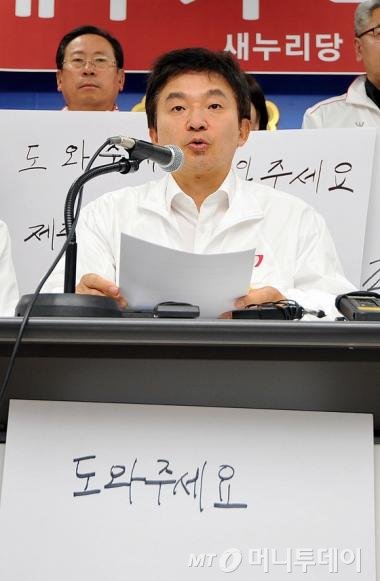 새누리당
도와주세요
도와주세요
제주
도와주세요
MT 머니투데이